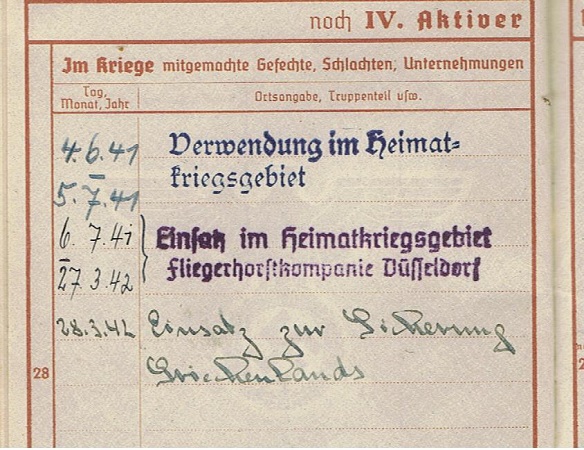 noch IV. Aktiver
Im Kriege mitgemachte Gefechte, Schlachten, Unternehmungen
Tag, Monat, Jahr
Ortsangabe, Truppenteil usw.
4.6.41 Verwendung im Heimat-
– kriegsgebiet
5.7.41
6. 7.41 } Einsatz im Heimatkriegsgebiet
– Fliegerhorstkompanie Düsseldorf
27 3.42
28.3.42 Einsatz zur Sicherung
28 Griechenlands